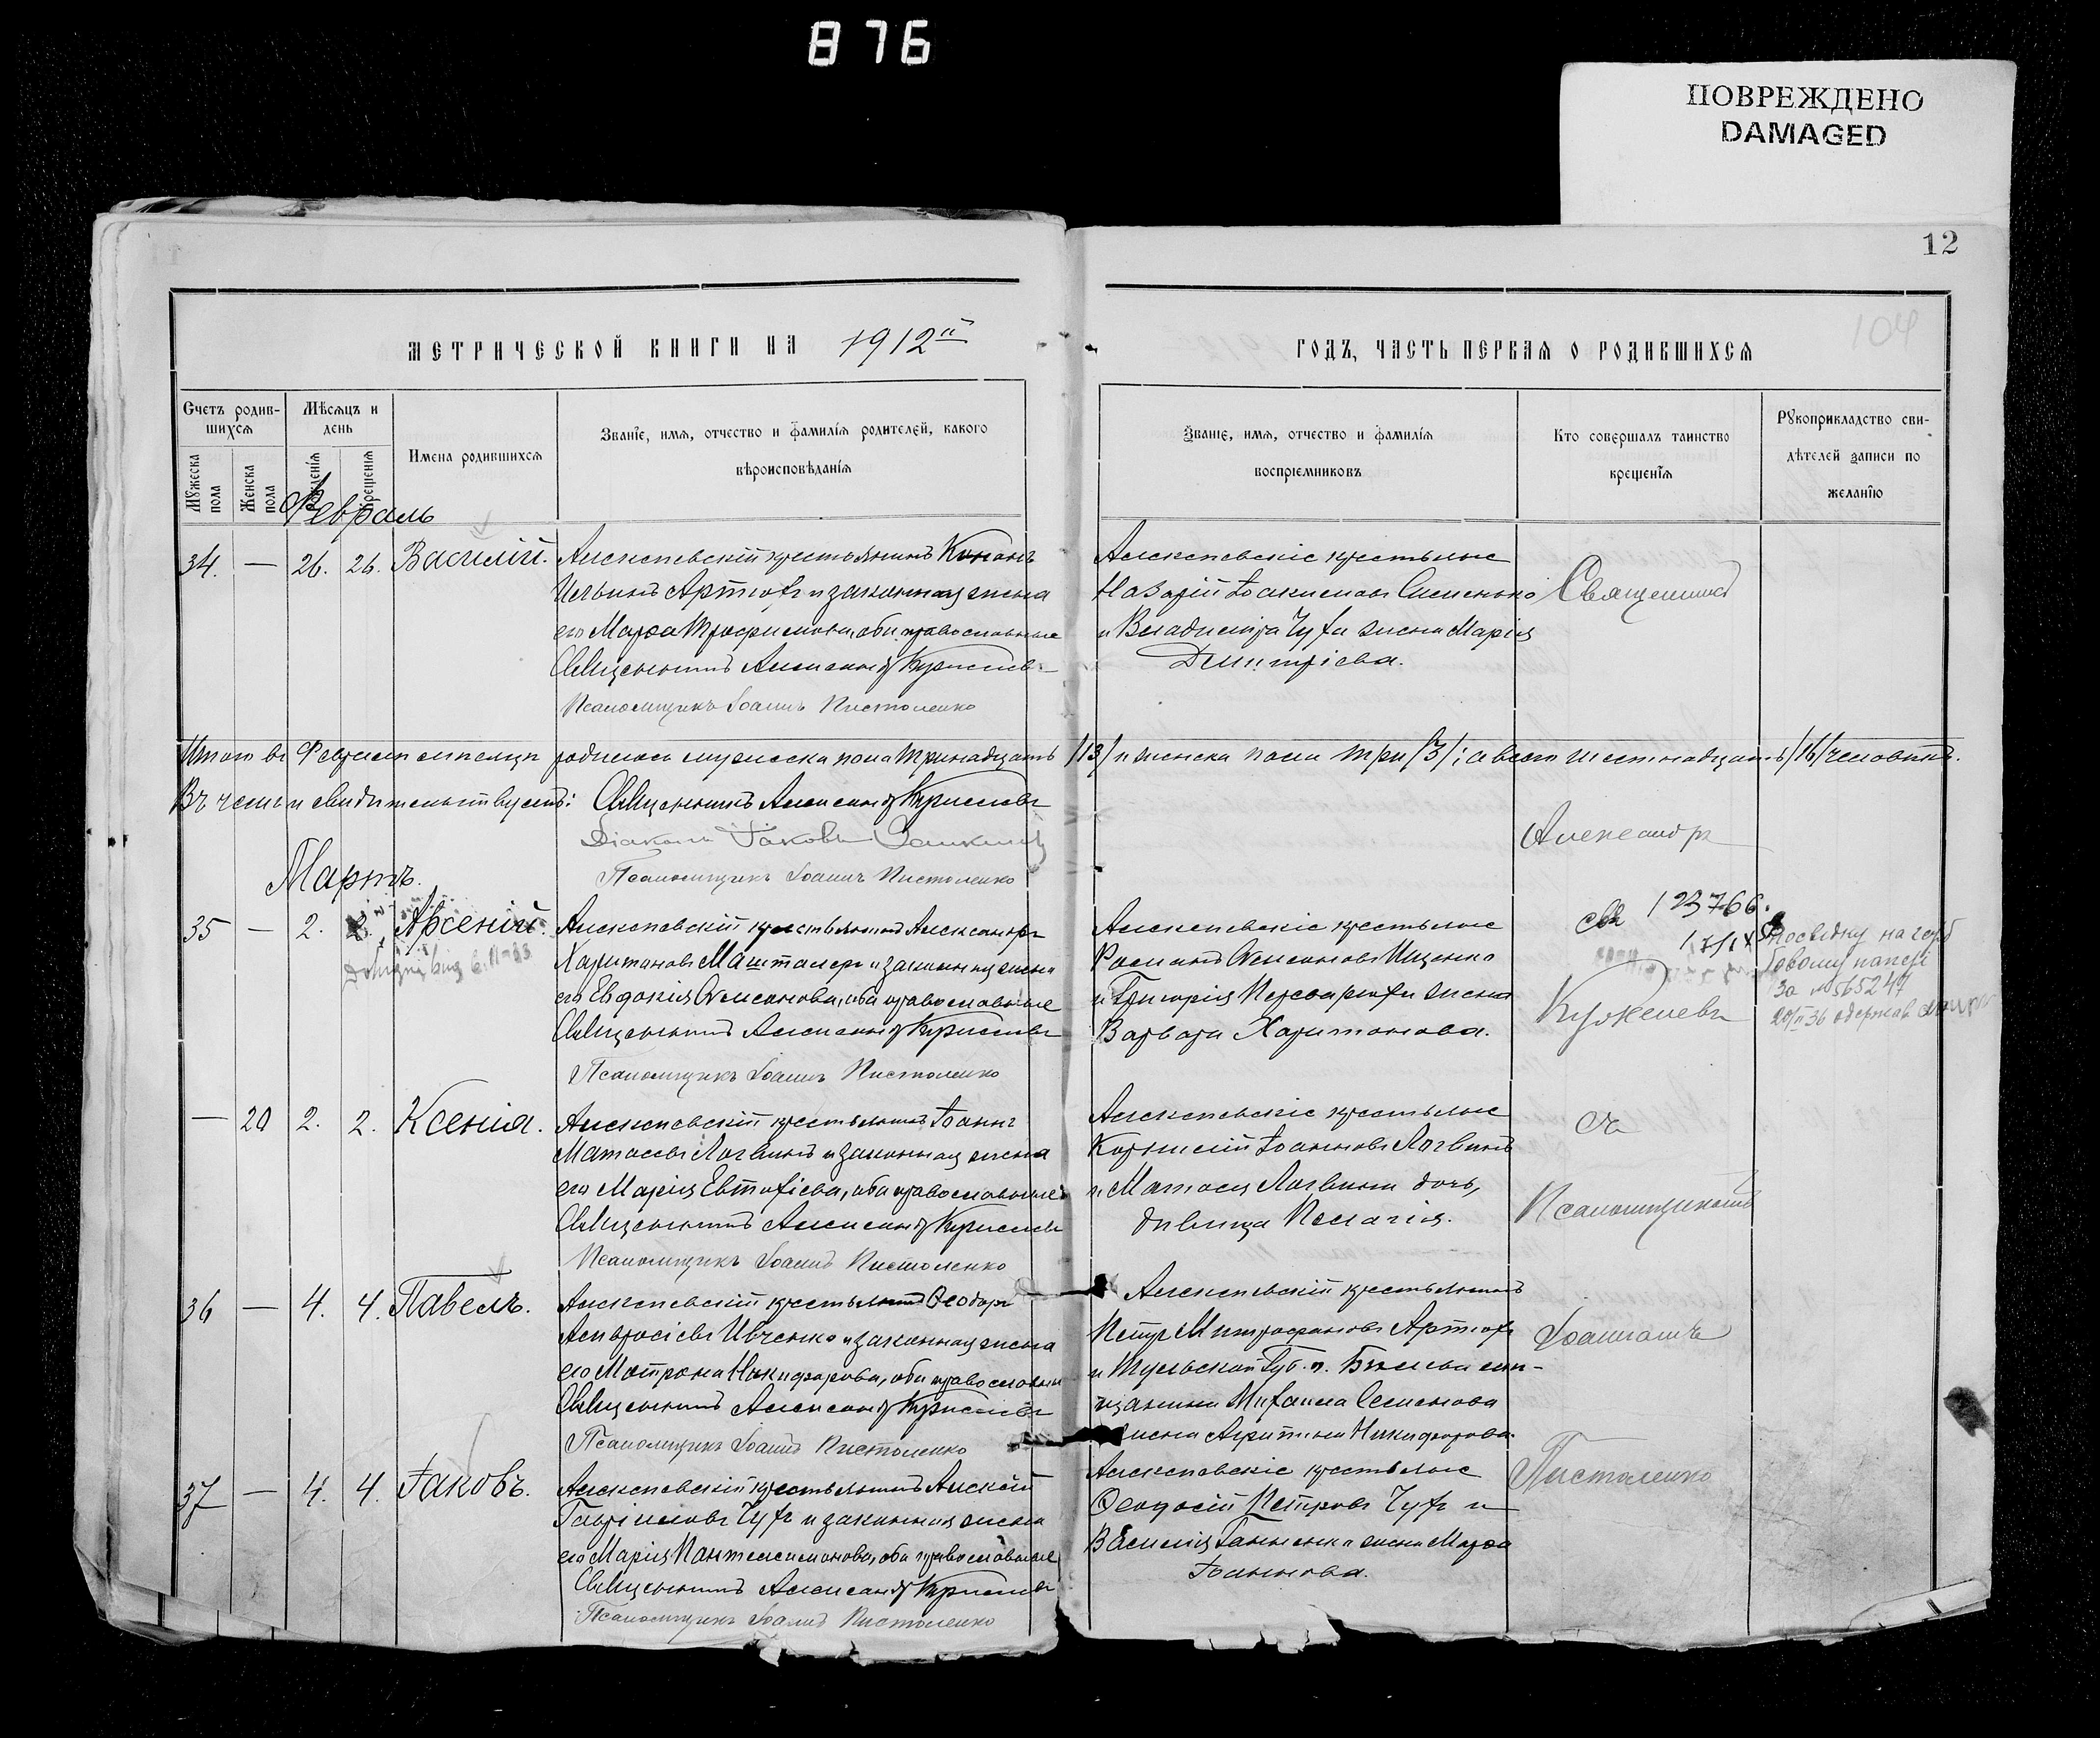 876
ПОВРЕЖДЕНО
DAMAGED
12
104
МЕТРИЧЕСКОЙ КНИГИ НА 1912й
ГОДЪ, ЧАСТЬ ПЕРВАЯ О РОДИВШИХСЯ
Счетъ родив-
шихся
Мужеска пола
Женска пола
Мѣсяцъ и
день
рожденія
крещенія
Имена родившихся
Званіе, имя, отчество и фамилія родителей, какого
вѣроисповѣданія
Званіе, имя, отчество и фамилія
воспріемниковъ
Кто совершалъ таинство
крещенія
Рукоприкладство сви-
дѣтелей записи по
желанію
Февраль
34. — 26. 26. Василій.
Алексѣевскій крестьянинъ Кононъ
Ильинъ Артюхъ и законная жена
его Марфа Трофимова, оба православные
Священникъ Александръ
Псаломщикъ Іоаннъ Пистоленко
Алексѣевскіе крестьяне
Назарій Іоакимовъ Симоненко
и Владиміра Чуха жена Марія
Димитріева.
Священникъ
Итого въ Февралѣ мѣсяцѣ родилось мужеска пола тринадцать /13/ и женска пола три /3/; а всего шестнадцать /16/ человѣкъ.
Въ чемъ и свидѣтельствуемъ: Священникъ Александръ
Діаконъ Іаковъ
Псаломщикъ Іоаннъ Пистоленко
Александръ
Мартъ.
35 — 2. 2. Арсеній.
Алексѣевскій крестьянинъ Александръ
Харитоновъ Машталеръ и законная жена
его Евдокія Симонова, оба православные
Священникъ Александръ
Псаломщикъ Іоаннъ Пистоленко
Алексѣевскіе крестьяне
Романъ Симоновъ Ищенко
и Григорія жена
Варвара Харитонова.
св 123766.
17/IX
посвідку на герб
бовому папері
за № 565247
20/II 36 одержав
— 20 2. 2. Ксенія.
Алексѣевскій крестьянинъ Іоаннъ
Матѳеевъ Логвинъ и законная жена
его Марія Евтихіева, оба православные
Священникъ Александръ
Псаломщикъ Іоаннъ Пистоленко
Алексѣевскіе крестьяне
Корнилій Іоанновъ Логвинъ
и Матѳея Логвина дочь,
дѣвица Пелагія.
съ
Псаломщикомъ
36 — 4. 4. Павелъ.
Алексѣевскій крестьянинъ Ѳеодоръ
Амвросіевъ Ивченко и законная жена
его Матрона Никифорова, оба православные
Священникъ Александръ
Псаломщикъ Іоаннъ Пистоленко
Алексѣевскій крестьянинъ
Петръ Митрофановъ Артюхъ
и Тульской Губ. г. Бѣлева мѣ-
щанина Михаила Семенова
жена Никифорова.
Іоанномъ
37 — 4. 4. Іаковъ.
Алексѣевскій крестьянинъ Алексѣй
Гавріиловъ Чухъ и законная жена
его Марія Пантелеимонова, оба православные
Священникъ Александръ
Псаломщикъ Іоаннъ Пистоленко
Алексѣевскіе крестьяне
Ѳеодосій Петровъ Чухъ и
Василія жена Марфа
Іоаннова.
Пистоленко